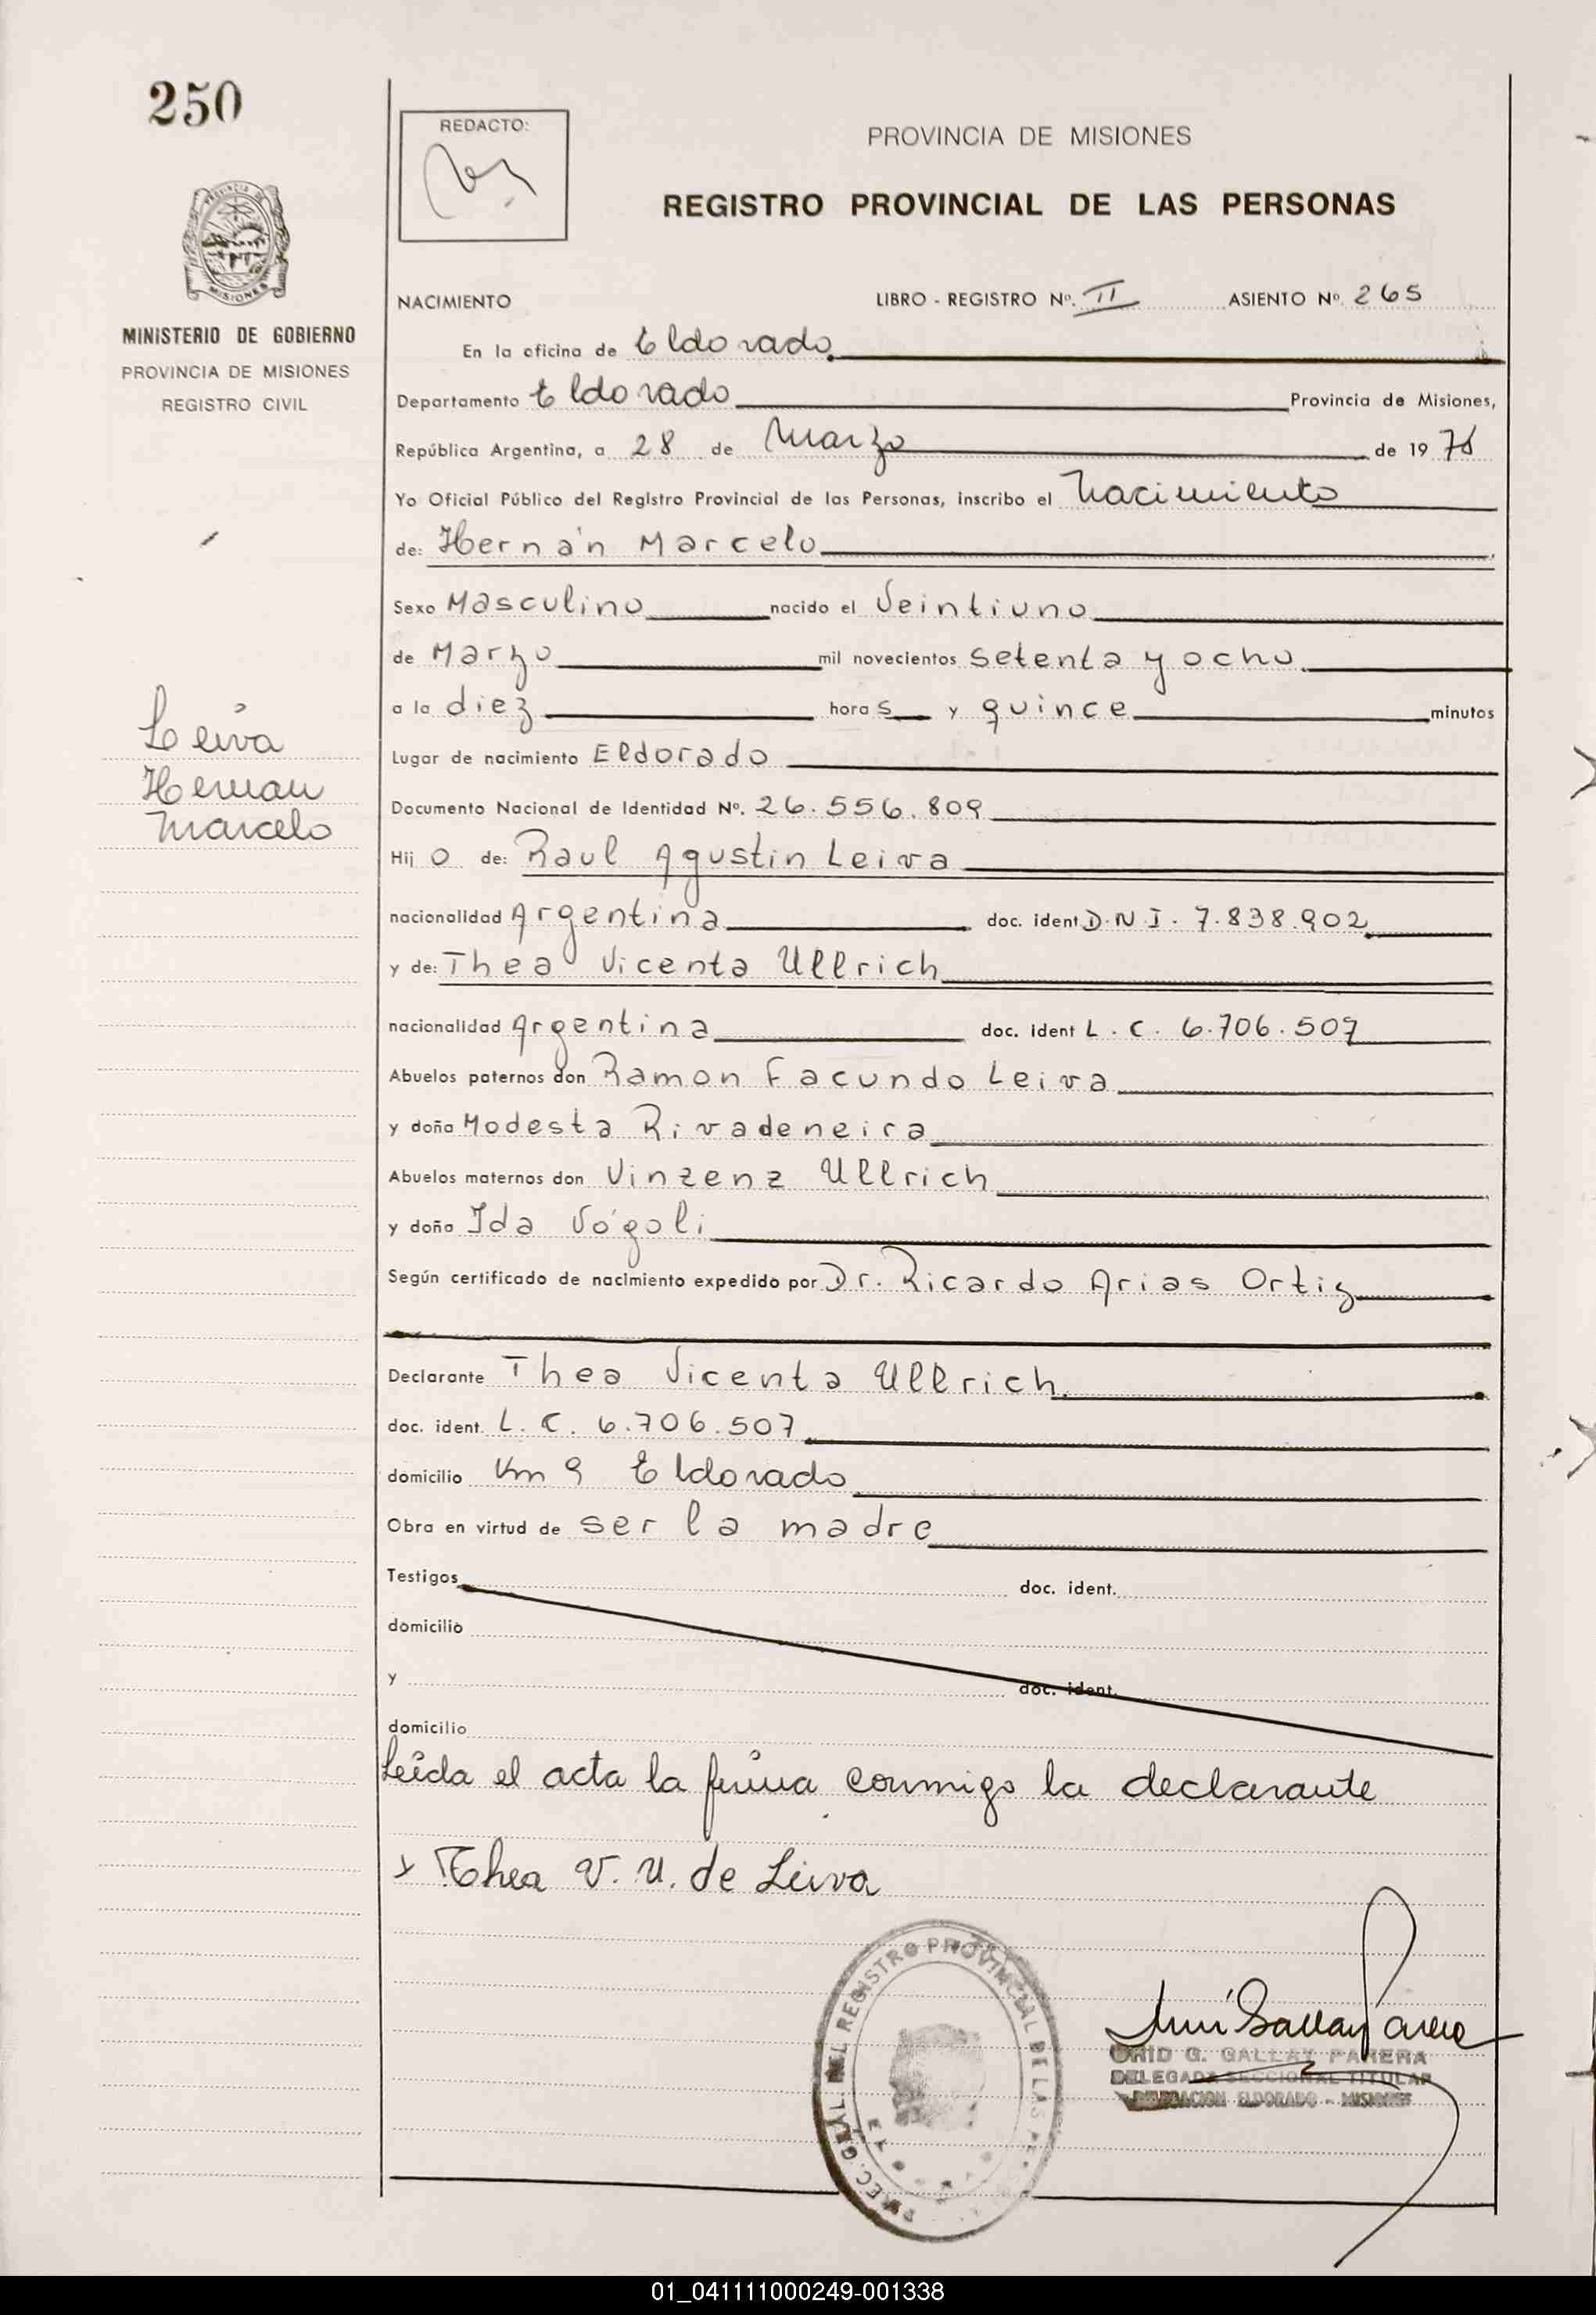 250
REDACTO:
PROVINCIA DE MISIONES
REGISTRO PROVINCIAL DE LAS PERSONAS
MISIONES
MINISTERIO DE GOBIERNO
PROVINCIA DE MISIONES
REGISTRO CIVIL
NACIMIENTO LIBRO - REGISTRO Nº. II ASIENTO Nº. 265
En la oficina de Eldorado
Departamento Eldorado Provincia de Misiones,
República Argentina, a 28 de Marzo de 1978
Yo Oficial Público del Registro Provincial de las Personas, inscribo el Nacimiento
de: Hernán Marcelo
Sexo Masculino nacido el Veintiuno
de Marzo mil novecientos setenta y ocho
a la diez horas y quince minutos
Leiva
Hernan
Marcelo
Lugar de nacimiento Eldorado
Documento Nacional de Identidad Nº. 26.556.809
Hijo de: Raul Agustin Leiva
nacionalidad Argentina doc. ident D.N.I. 7.838.902
y de: Thea Vicenta Ullrich
nacionalidad Argentina doc. ident L.C. 6.706.507
Abuelos paternos don Ramon Facundo Leiva
y doña Modesta Rivadeneira
Abuelos maternos don Vinzenz Ullrich
y doña Ida Vógoli
Según certificado de nacimiento expedido por Dr. Ricardo Arias Ortiz
Declarante Thea Vicenta Ullrich
doc. ident. L.C. 6.706.507
domicilio Km 9 Eldorado
Obra en virtud de ser la madre
Testigos doc. ident.
domicilio
y doc. ident.
domicilio
Leída el acta la firma conmigo la declarante
x Thea V. U. de Leiva
DEL REGISTRO PROVINCIAL DE LAS
G. GALLAY PARERA
DELEGADA SECCIONAL TITULAR
DELEGACION ELDORADO - MISIONES
01_041111000249-001338